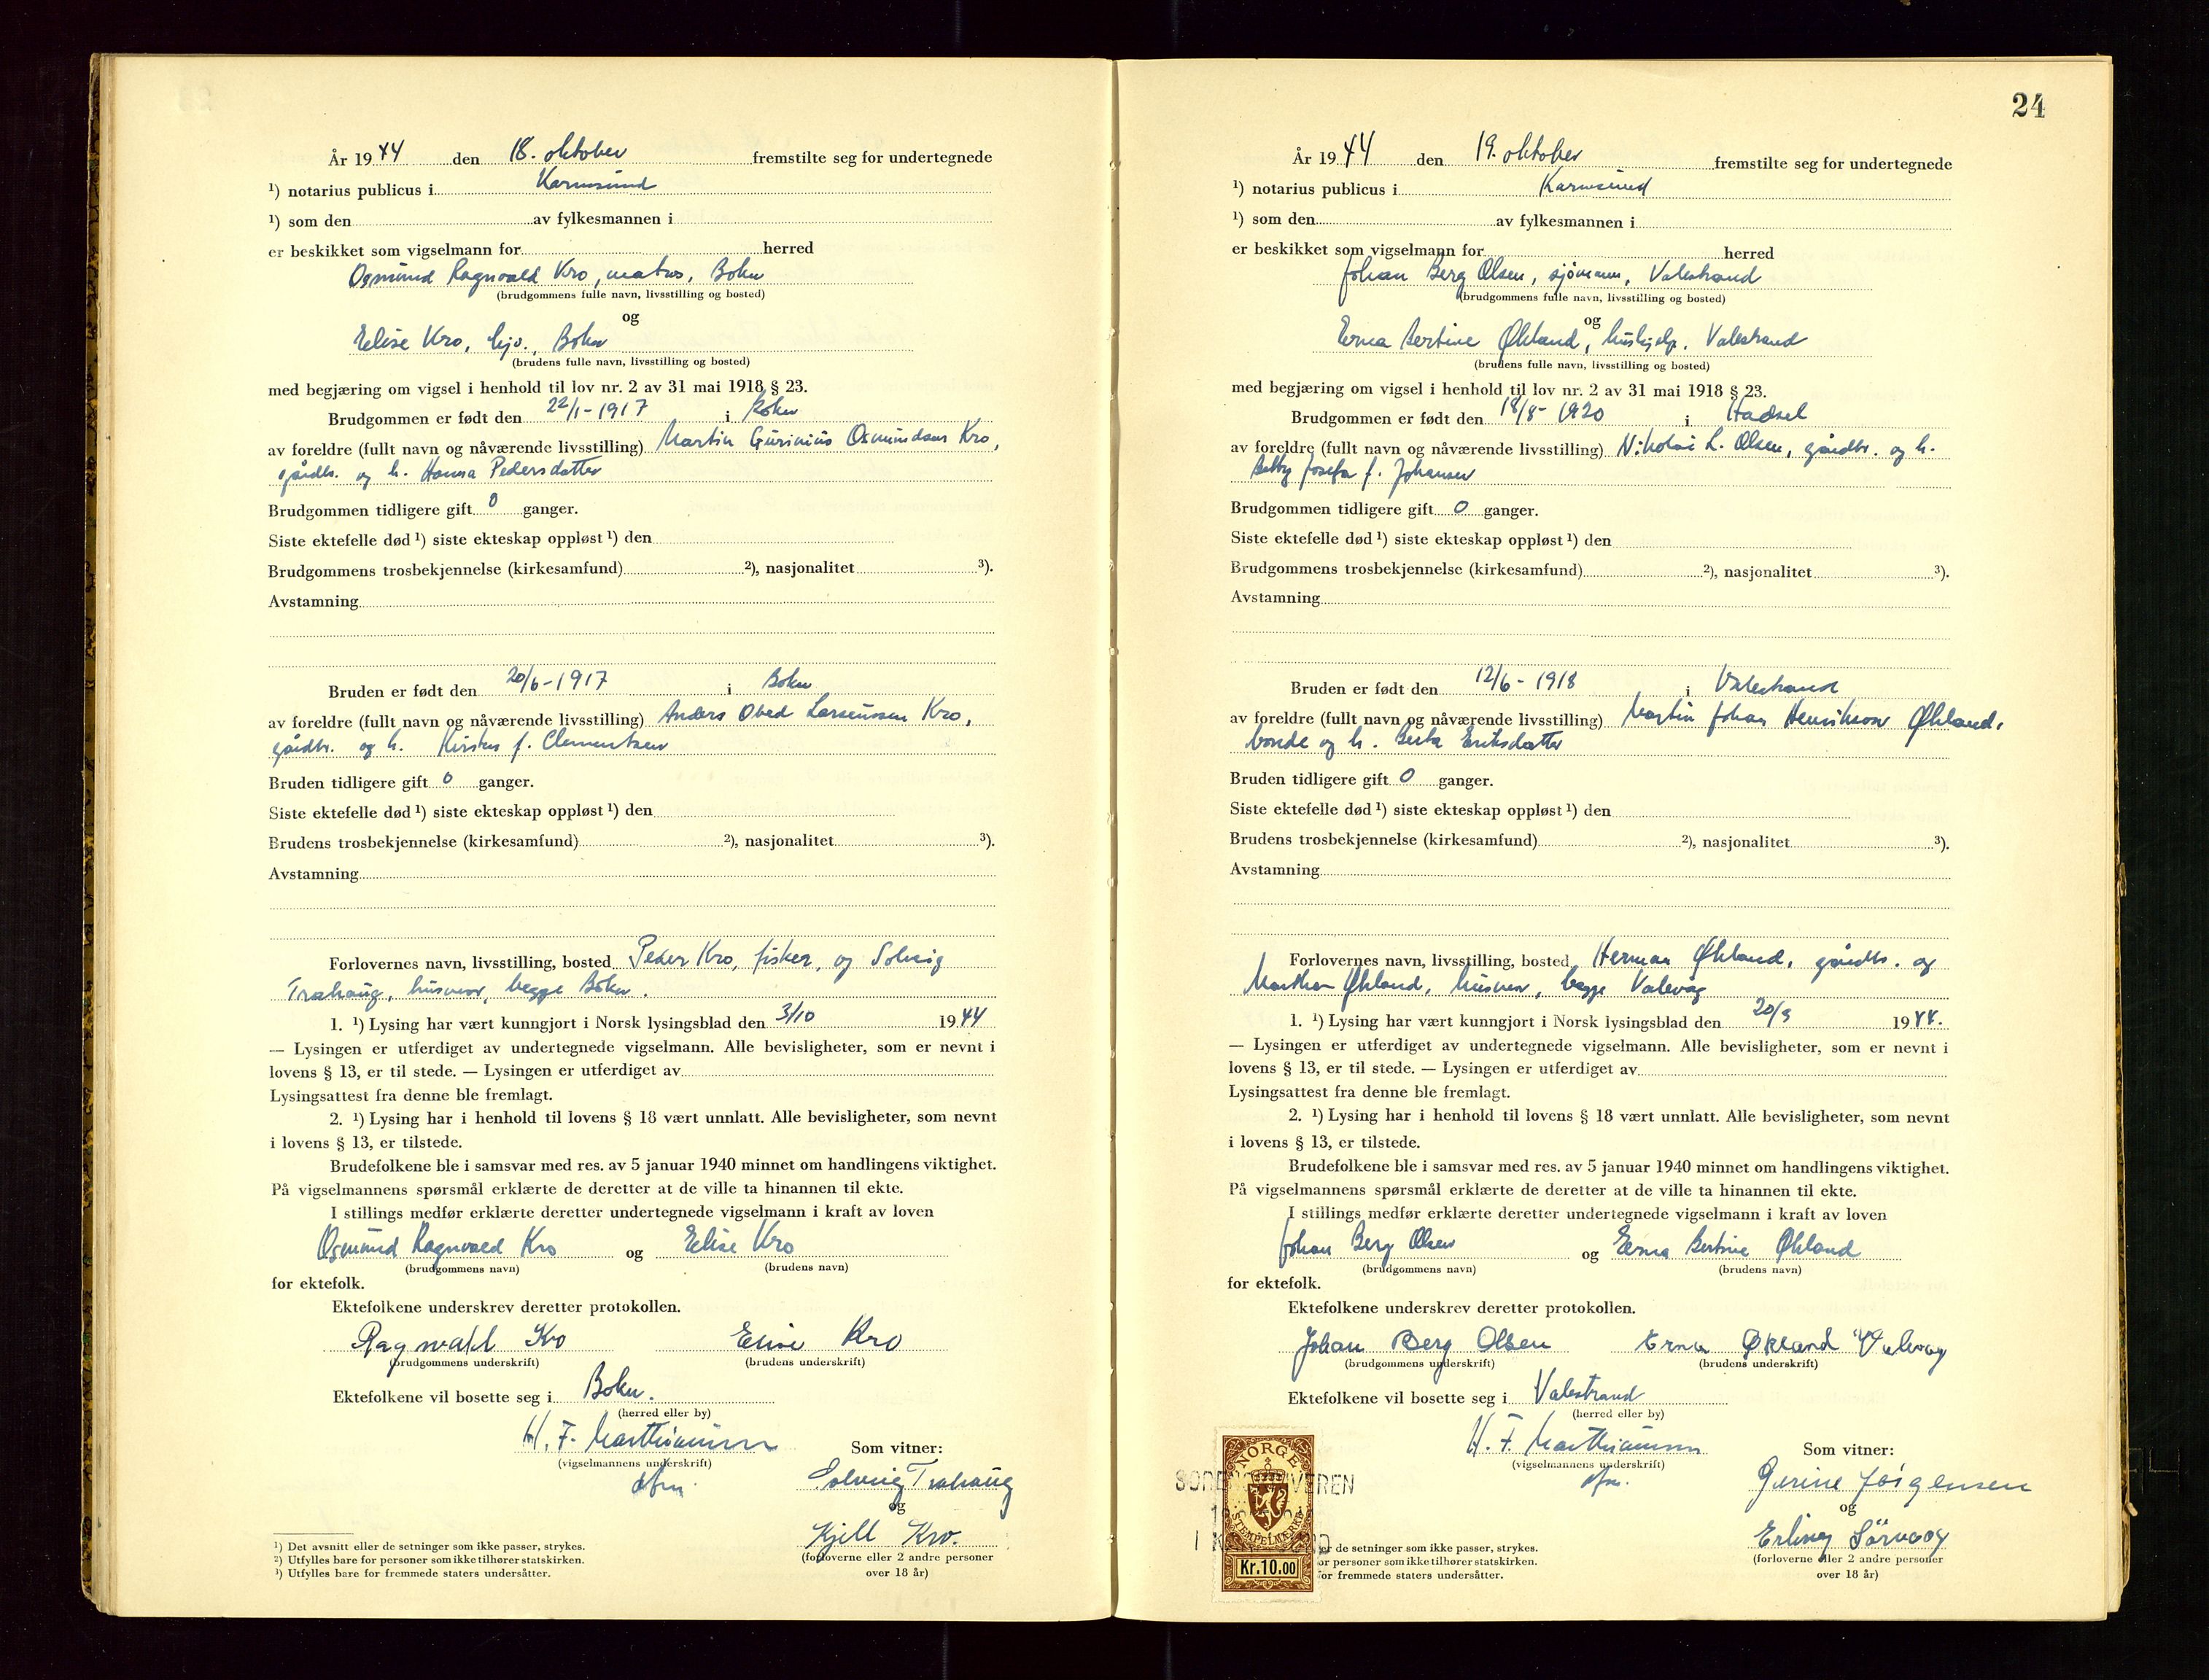 År 1944 den 18. oktober fremstilte seg for undertegnede
¹) notarius publicus i Karmsund
¹) som den av fylkesmannen i
er beskikket som vigselmann for herred
Osmund Ragnvald Kro, matros, Bokn
(brudgommens fulle navn, livsstilling og bosted)
og
Elise Kro, hjv., Bokn
(brudens fulle navn, livsstilling og bosted)
med begjæring om vigsel i henhold til lov nr. 2 av 31 mai 1918 § 23.
Brudgommen er født den 22/1-1917 i Bokn
av foreldre (fullt navn og nåværende livsstilling) Martin Gurinius Osmundsen Kro,
gårdbr. og h. Hanna Pedersdatter
Brudgommen tidligere gift 0 ganger.
Siste ektefelle død ¹) siste ekteskap oppløst ¹) den
Brudgommens trosbekjennelse (kirkesamfund) ²), nasjonalitet ³).
Avstamning
Bruden er født den 20/6-1917 i Bokn
av foreldre (fullt navn og nåværende livsstilling) Anders Obed Larsenssen Kro,
gårdbr. og h. Kirsten f. Clementsen
Bruden tidligere gift 0 ganger.
Siste ektefelle død ¹) siste ekteskap oppløst ¹) den
Brudens trosbekjennelse (kirkesamfund) ²), nasjonalitet ³).
Avstamning
Forlovernes navn, livsstilling, bosted Peder Kro, fisker, og Solveig
Trahaug, husmor, begge Bokn.
1. ¹) Lysing har vært kunngjort i Norsk lysingsblad den 3/10 1944
— Lysingen er utferdiget av undertegnede vigselmann. Alle bevisligheter, som er nevnt i
lovens § 13, er til stede. — Lysingen er utferdiget av
Lysingsattest fra denne ble fremlagt.
2. ¹) Lysing har i henhold til lovens § 18 vært unnlatt. Alle bevisligheter, som nevnt
i lovens § 13, er tilstede.
Brudefolkene ble i samsvar med res. av 5 januar 1940 minnet om handlingens viktighet.
På vigselmannens spørsmål erklærte de deretter at de ville ta hinannen til ekte.
I stillings medfør erklærte deretter undertegnede vigselmann i kraft av loven
Osmund Ragnvald Kro og Elise Kro
(brudgommens navn) (brudens navn)
for ektefolk.
Ektefolkene underskrev deretter protokollen.
Ragnvald Kro Elise Kro
(brudgommens underskrift) (brudens underskrift)
Ektefolkene vil bosette seg i Bokn.
(herred eller by)
H. F. Marthinussen
(vigselmannens underskrift)
Som vitner:
Solveig Trahaug
og
Kjell Kro.
(forloverne eller 2 andre personer
over 18 år)
¹) Det avsnitt eller de setninger som ikke passer, strykes.
²) Utfylles bare for personer som ikke tilhører statskirken.
³) Utfylles bare for fremmede staters undersåtter.
24
År 1944 den 19. oktober fremstilte seg for undertegnede
¹) notarius publicus i Karmsund
¹) som den av fylkesmannen i
er beskikket som vigselmann for herred
Johan Berg Olsen, sjømann, Valestrand
(brudgommens fulle navn, livsstilling og bosted)
og
Erna Bertine Økland, hushjelp. Valestrand
(brudens fulle navn, livsstilling og bosted)
med begjæring om vigsel i henhold til lov nr. 2 av 31 mai 1918 § 23.
Brudgommen er født den 18/8-1920 i Hadsel
av foreldre (fullt navn og nåværende livsstilling) Nikolai L. Olsen, gårdbr. og h.
Josefa f. Johansen
Brudgommen tidligere gift 0 ganger.
Siste ektefelle død ¹) siste ekteskap oppløst ¹) den
Brudgommens trosbekjennelse (kirkesamfund) ²), nasjonalitet ³).
Avstamning
Bruden er født den 12/6-1918 i Valestrand
av foreldre (fullt navn og nåværende livsstilling) Martin Johan Henrikson Økland,
bonde og h. Berta Eriksdatter
Bruden tidligere gift 0 ganger.
Siste ektefelle død ¹) siste ekteskap oppløst ¹) den
Brudens trosbekjennelse (kirkesamfund) ²), nasjonalitet ³).
Avstamning
Forlovernes navn, livsstilling, bosted Herman Økland, gårdbr. og
Marthe Økland, husmor, begge Valevåg
1. ¹) Lysing har vært kunngjort i Norsk lysingsblad den 20/9 1944.
— Lysingen er utferdiget av undertegnede vigselmann. Alle bevisligheter, som er nevnt i
lovens § 13, er til stede. — Lysingen er utferdiget av
Lysingsattest fra denne ble fremlagt.
2. ¹) Lysing har i henhold til lovens § 18 vært unnlatt. Alle bevisligheter, som nevnt
i lovens § 13, er tilstede.
Brudefolkene ble i samsvar med res. av 5 januar 1940 minnet om handlingens viktighet.
På vigselmannens spørsmål erklærte de deretter at de ville ta hinannen til ekte.
I stillings medfør erklærte deretter undertegnede vigselmann i kraft av loven
Johan Berg Olsen og Erna Bertine Økland
(brudgommens navn) (brudens navn)
for ektefolk.
Ektefolkene underskrev deretter protokollen.
Johan Berg Olsen Erna Økland Valevag
(brudgommens underskrift) (brudens underskrift)
Ektefolkene vil bosette seg i Valestrand
(herred eller by)
H. F. Marthinussen
(vigselmannens underskrift)
Som vitner:
Gurine Jørgensen
og
Erling Sörvaag
(forloverne eller 2 andre personer
over 18 år)
NORGE
STEMPELMERKE
Kr.10.00
er de setninger som ikke passer, strykes.
or personer som ikke tilhører statskirken.
for fremmede staters undersåtter.